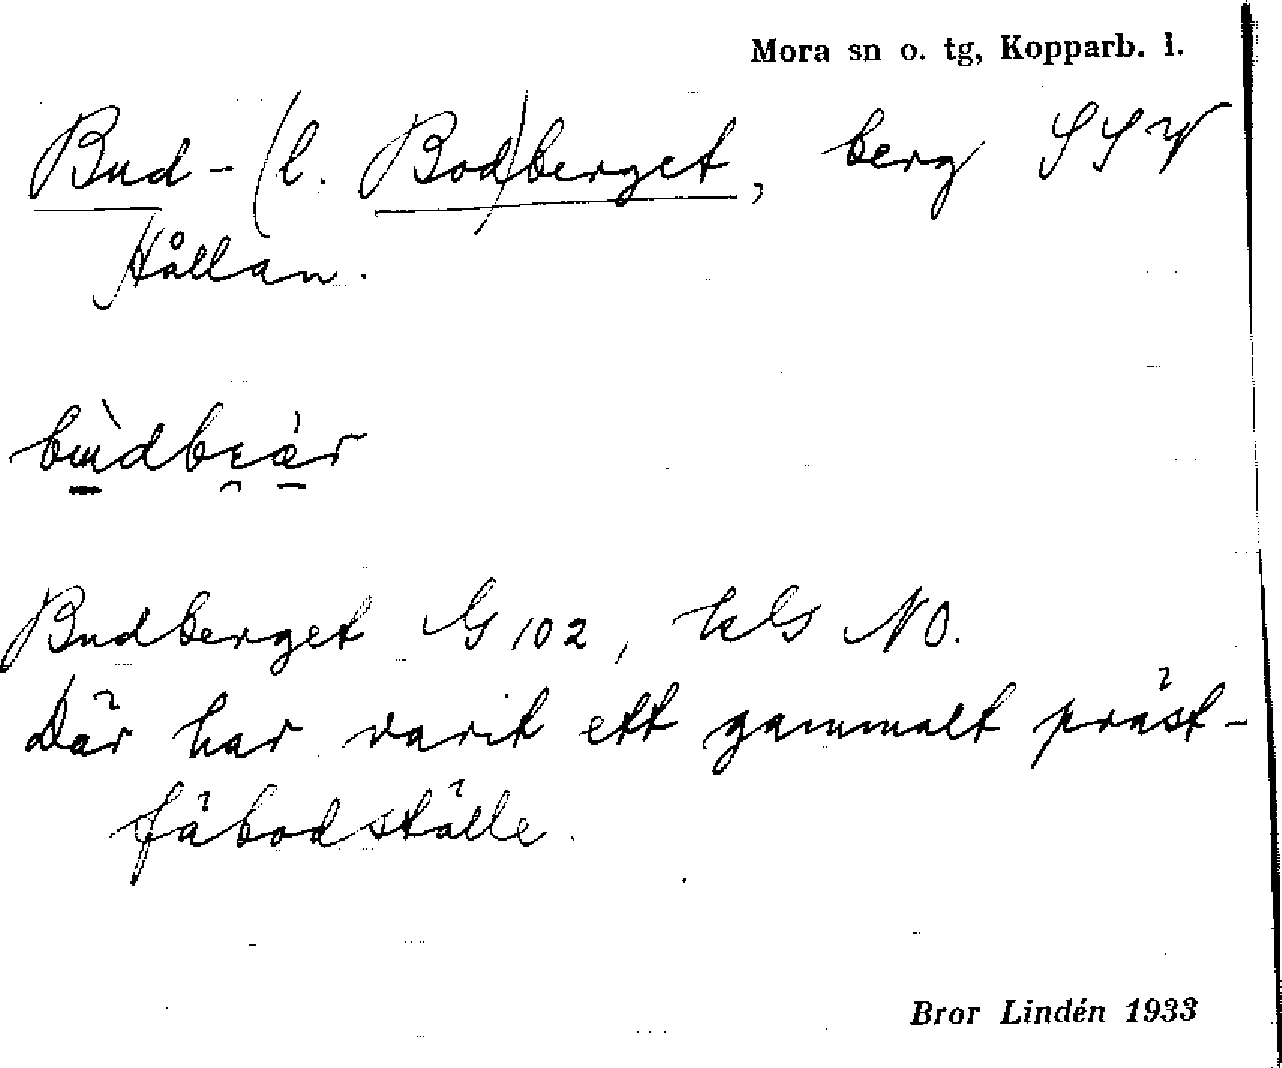 Mora sn o. tg, Kopparb. l.
Bud- (l. Bod)berget, berg SSV
Hållan.
Budberget G 102, NO.
Där har varit ett gammalt präst-
fäbodställe.
Bror Lindén 1933